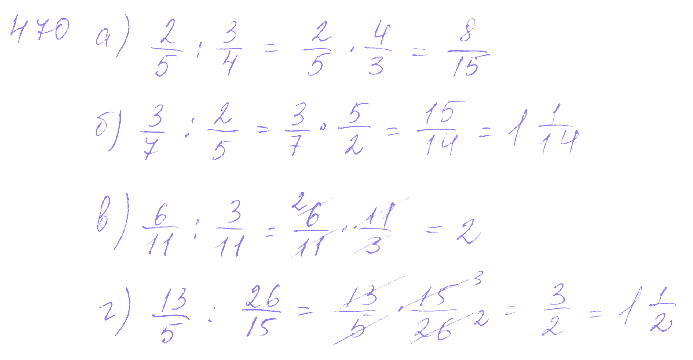 470 а) 2/5 : 3/4 = 2/5 · 4/3 = 8/15
б) 3/7 : 2/5 = 3/7 · 5/2 = 15/14 = 1 1/14
в) 6/11 : 3/11 = 2 6/11 · 11/3 = 2
г) 13/5 : 26/15 = 13/5 · 15/26 3 2 = 3/2 = 1 1/2